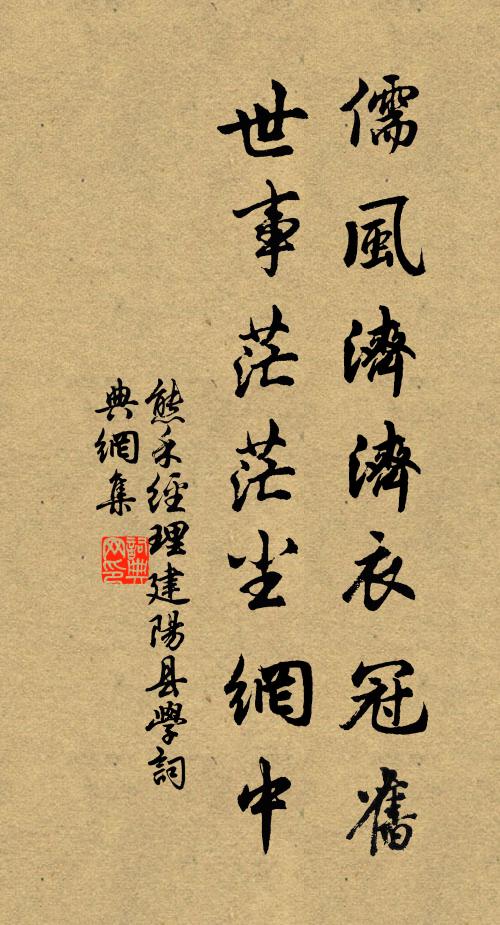 儒風濟濟衣冠舊
世事茫茫尘網中
熊禾經理建陽县學詞
典網集
詞典网印